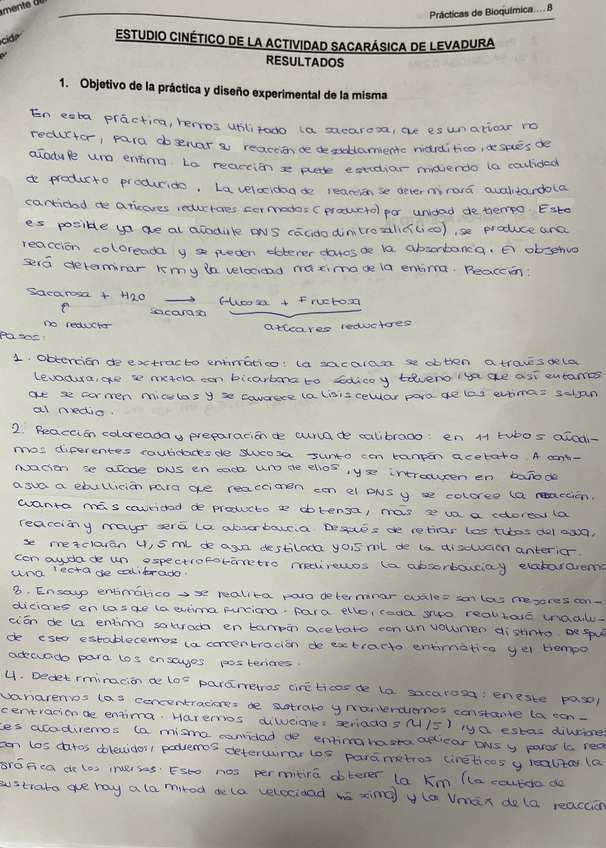 amente de
Prácticas de Bioquímica....8
ESTUDIO CINÉTICO DE LA ACTIVIDAD SACARÁSICA DE LEVADURA
RESULTADOS
1. Objetivo de la práctica y diseño experimental de la misma
En esta práctica, hemos utilizado la sacarosa, que es un azúcar no
reductor, para observar su reacción de desdoblamiento hidrolítico, después de
añadirle una enzima. La reacción se puede estudiar midiendo la cantidad
de producto producido. La velocidad de reacción se determinará analizando la
cantidad de azúcares reductores formados (producto) por unidad de tiempo. Esto
es posible ya que al añadirle DNS (ácido dinitrosalicílico), se produce una
reacción coloreada y se pueden obtener datos de la absorbancia. El objetivo
será determinar Km y la velocidad máxima de la enzima. Reacción:
Sacarosa + H2O → Glucosa + Fructosa
sacarasa
no reductor
azúcares reductores
Pasos:
1. Obtención de exctracto enzimático: la sacarasa se obtien a través de la
levadura, que se mezcla con bicarbonato sódico y tolueno, ya que así evitamos
que se formen micelas y se favorece la lisis celular para que las enzimas salgan
al medio.
2. Reacción coloreada y preparación de curva de calibrado: en 11 tubos añadi-
mos diferentes cantidades de glucosa junto con tampón acetato. A conti-
nuación se añade DNS en cada uno de ellos, y se introducen en baño de
agua a ebullición para que reaccionen con el DNS y se coloree la reacción.
Cuanta más cantidad de producto se obtenga, más se va a colorear la
reacción y mayor será la absorbancia. Después de retirar los tubos del agua,
se mezclarán 4,5 mL de agua destilada y 0,5 mL de la disolución anterior.
Con ayuda de un espectrofotómetro mediremos la absorbancia y elaboraremo
una recta de calibrado.
3. Ensayo enzimático → se realiza para determinar cuáles son las mejores con-
diciones en las que la enzima funciona. Para ello, cada grupo realizará una dilu-
ción de la enzima saturada en tampón acetato con un volumen distinto. Despué
de esto establecemos la concentración de extracto enzimático y el tiempo
adecuado para los ensayos posteriores.
4. Dedetrminación de los parámetros cinéticos de la sacarosa: en este paso,
variaremos las concentraciones de sustrato y mantendremos constante la con-
centración de enzima. Haremos diluciones seriadas (4/5), y a estas dilucione
les añadiremos la misma cantidad de enzima hasta aplicar DNS y parar la rea
con los datos obtenidos, podremos determinar los parámetros cinéticos y realizar la
gráfica de los inversos. Esto nos permitirá obtener la Km (la cantida de
sustrato que hay a la mitad de la velocidad máxima) y la Vmáx de la reacción